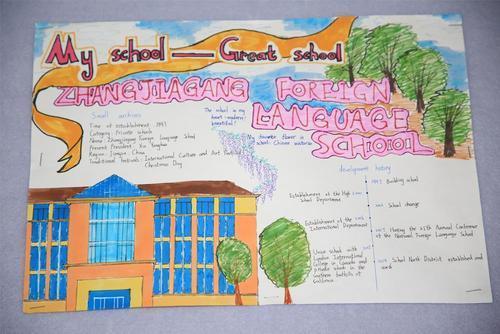 My school — Great school
ZHANGJIAGANG FOREIGN
LANGUAGE
SCHOOOL
Small archives
Time of establishment: 1997
Category: Private schools
Name: Zhangjiagang Foreign Language School
President: Xu
Region: Jiangsu China
Traditional festivals: International Culture and Art Festival
Christmas Day
The school in my
heart - modern
beautiful!
My favourite flower in
school: Chinese wisteria
development history
1997 Building school
Establishment of the High
School Department
School change
Establishment of the
International Department
Having the 25th Annual Conference
of the National Foreign Language School
Union school with
London International
College in Canada and
middle schools in the
southern foothills of
California
School North District established and
used